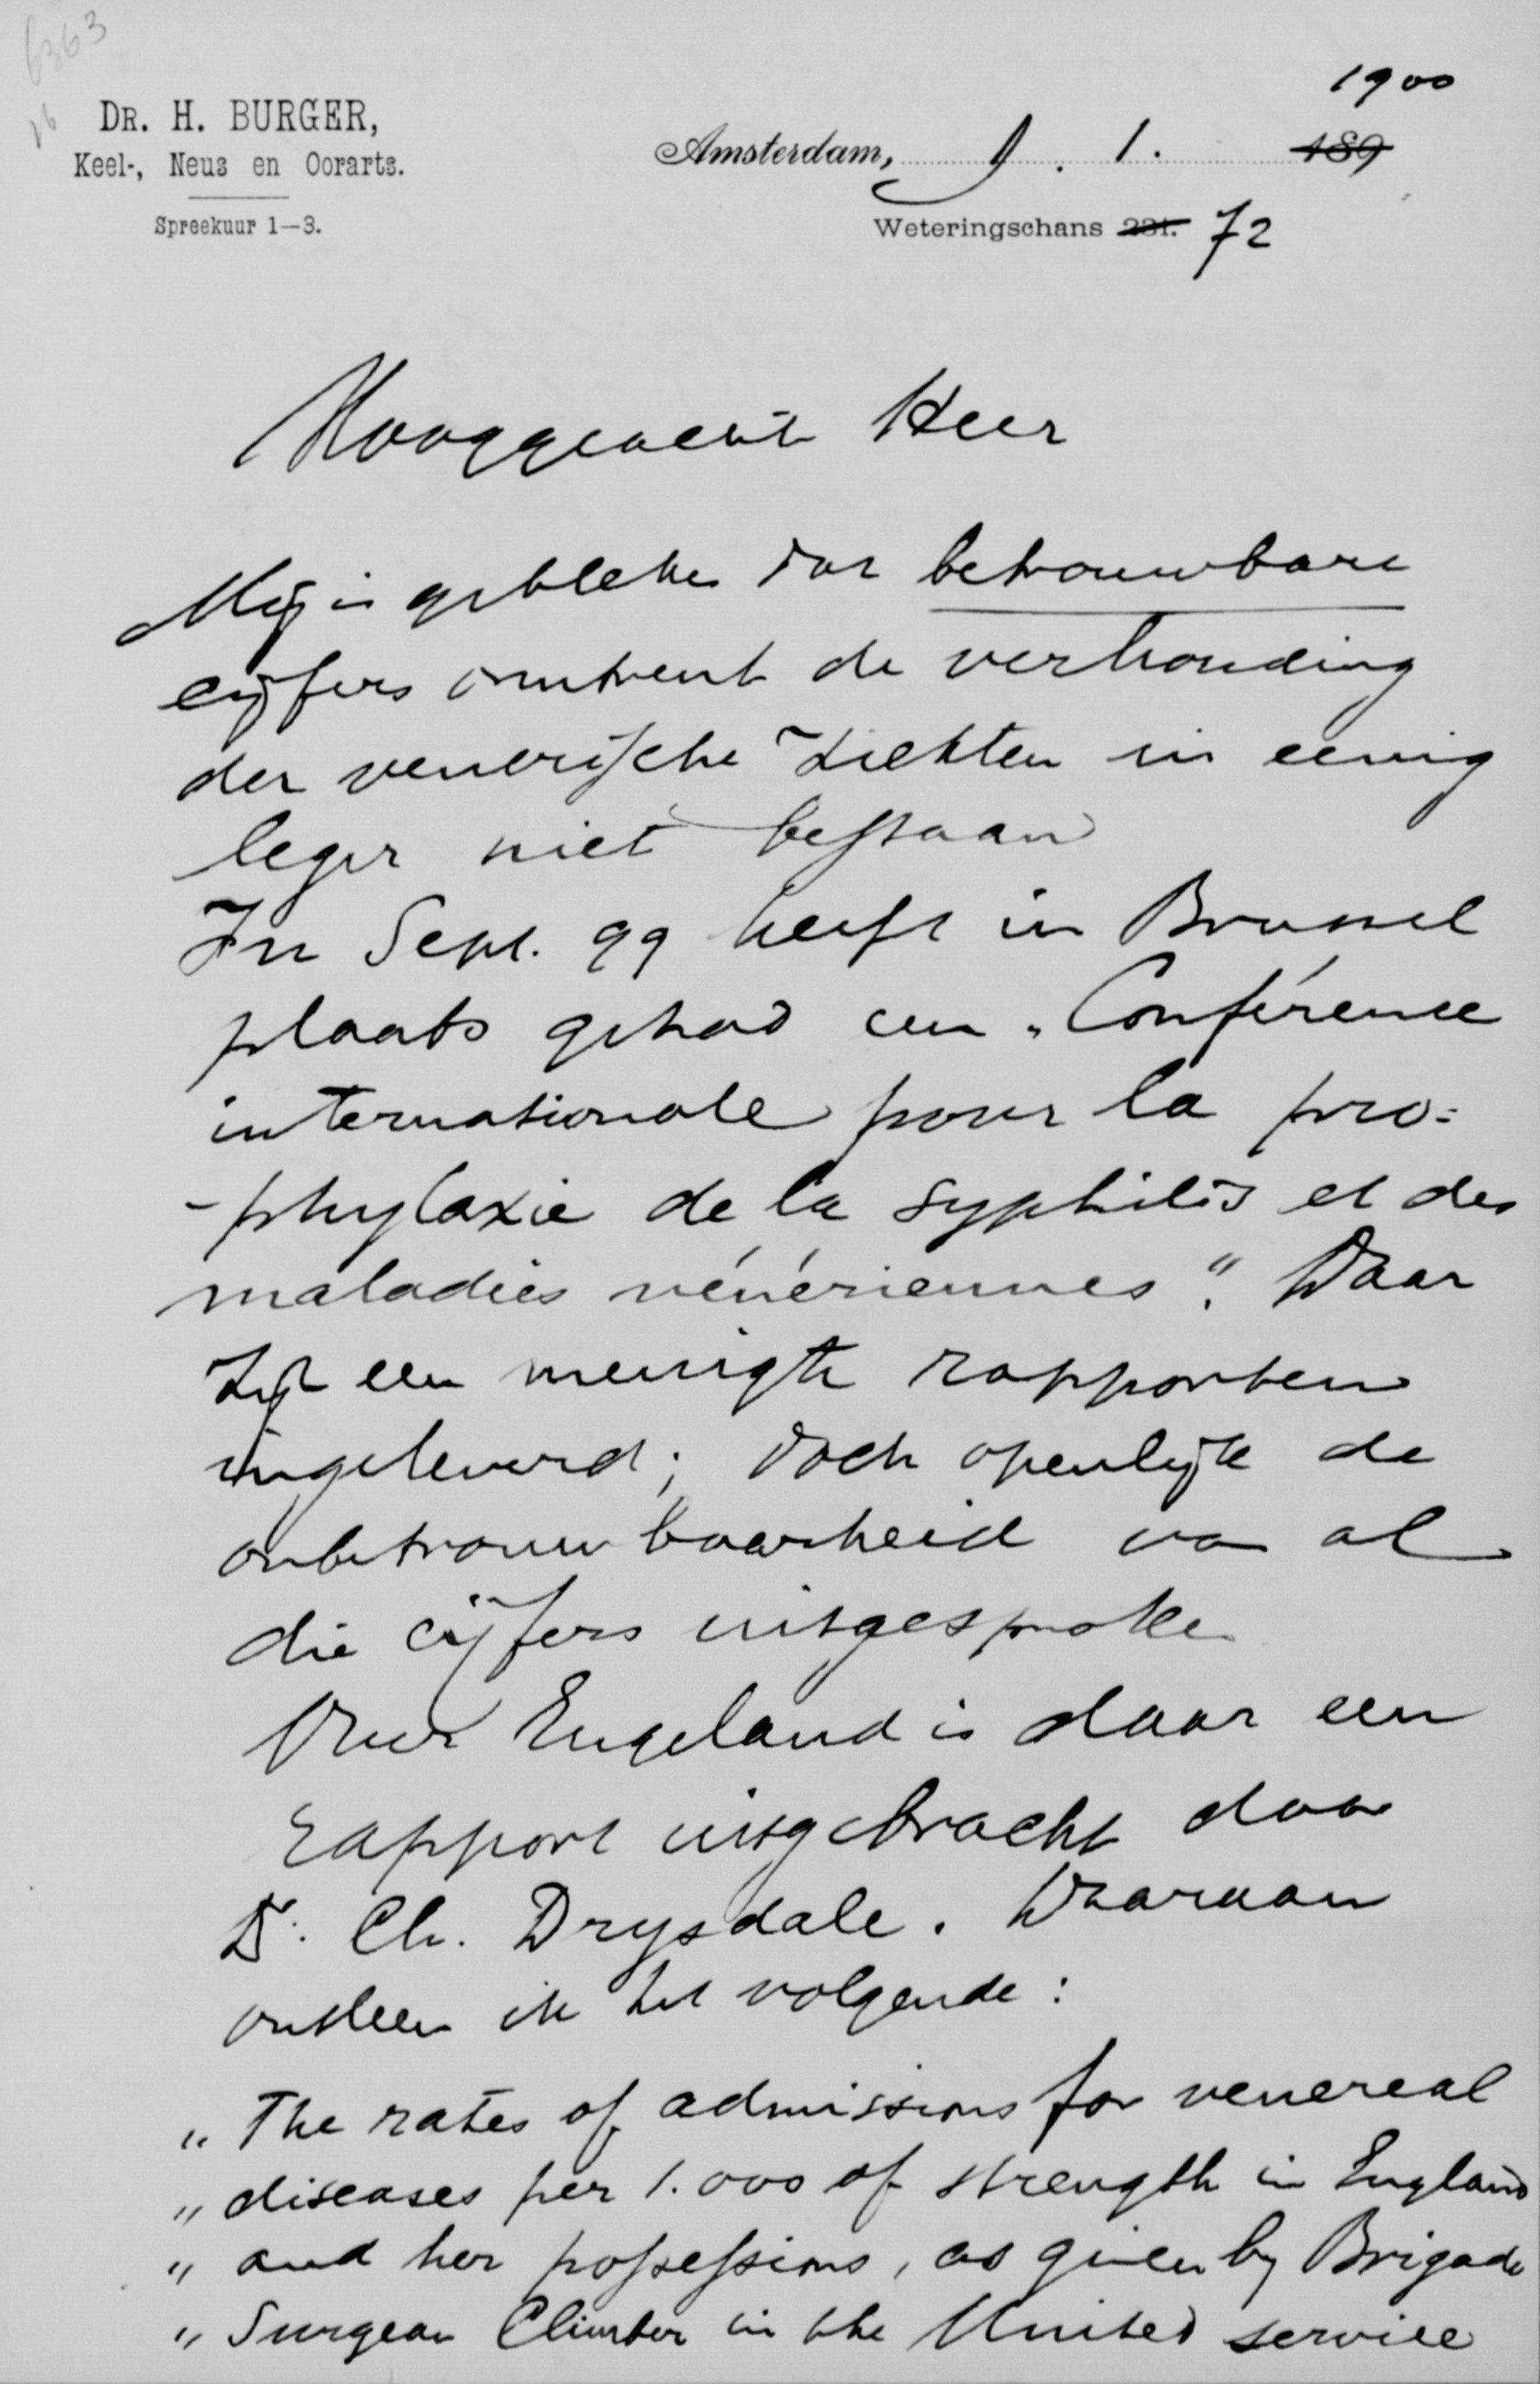 6363
DR. H. BURGER,
Keel-, Neus en Oorarts.
Spreekuur 1—3.
1900
Amsterdam, 9. 1. 189
Weteringschans 231. 72
Hooggeachte Heer
Mij is gebleken dat betrouwbare
cijfers omtrent de verhouding
der venerische ziekten in eenig
leger niet bestaan
In Sept. 99 heeft in Brussel
plaats gehad een „Conférence
internationale pour la pro=
-phylaxie de la syphilis et des
maladies vénériennes". Daar
zijn een menigte rapporten
ingeleverd; doch openlijk de
onbetrouwbaarheid van al
die cijfers uitgesproken
Over Engeland is daar een
rapport uitgebracht door
Dr. Ch. Drysdale. Daaraan
ontleen ik het volgende:
„ The rates of admissions for venereal
„ diseases per 1.000 of strength in England
„ and her possessions, as given by Brigade
„ Surgeon in the United service